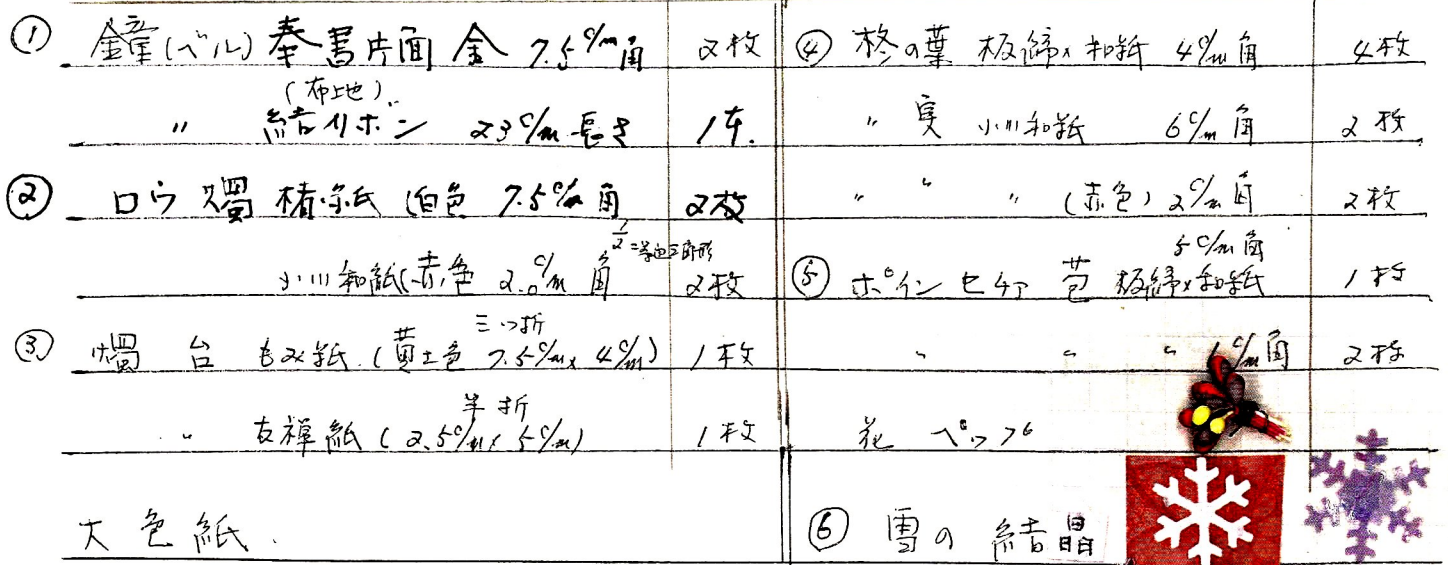 ① 鐘(ベル) 奉書片面 金 7.5c/m角 2枚
(布上地)
〃 結リボン 23c/m長さ 1本.
② ロウ燭 楮紙 (白色 7.5c/m角 2枚
小川和紙(赤色 2.0c/m角 1/2 二等辺三角形 2枚
三つ折
③ 燭台 もみ紙.(黄土色 7.5c/m x 4c/m) 1枚
半折
〃 友禅紙 (2.5c/m x 5c/m) 1枚
大色紙.
④ 柊の葉 板締め和紙 4c/m角 4枚
〃 実 小川和紙 6c/m角 2枚
〃 〃 〃 (赤色) 2c/m角 2枚
5c/m角
⑤ ポインセチア 苞 板締め和紙 1枚
〃 〃 〃 1c/m角 2枚
花 ペップ6
⑥ 雪の結晶